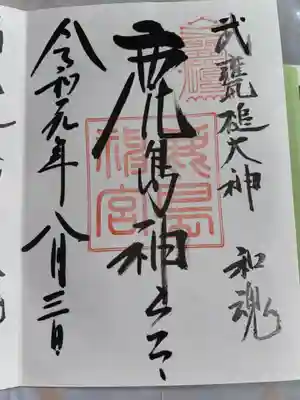 武甕槌大神 和魂
鹿島神宮
鹿島神宮
令和元年八月三日